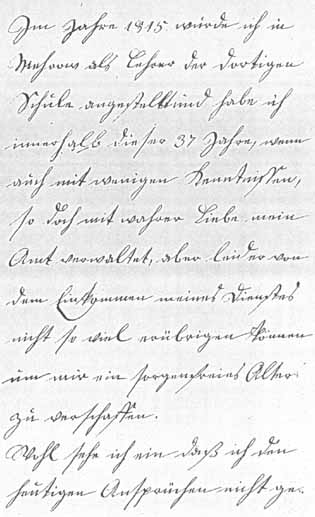 Im Jahre 1815 wurde ich in
Mehrow als Lehrer der dortigen
Schule angestellt und habe ich
innerhalb dieser 37 Jahre, wenn
auch mit wenigen Kenntnissen,
so doch mit wahrer Liebe mein
Amt verwaltet, aber leider von
dem Einkommen meines Dienstes
nicht so viel erübrigen können
um mir ein sorgenfreies Alter
zu verschaffen.
Wohl sehe ich ein daß ich den
heutigen Ansprüchen nicht ge-